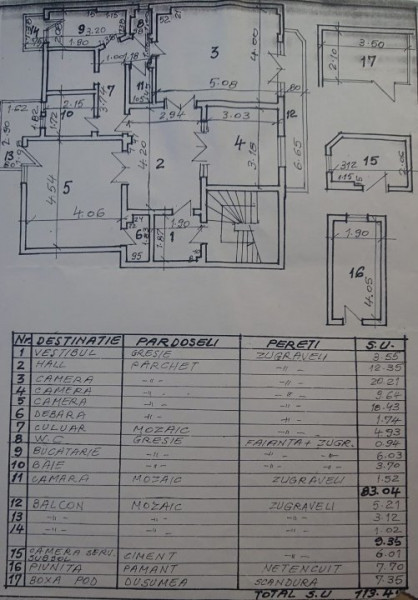 9 3.20
1.80
1.00
3
5.08
4.00
7
11
2.15
10
1.72
1.82
2.94
3.03
12
6.65
2
4.20
4
3.18
1.62
2.90
13
5
4.54
4.06
6
1.20
1
1.87
95
3.50
17
2.10
15
3.12
1.15
2.06
1.90
16
4.05
Nr. DESTINATIE PARDOSELI PERETI S.U.
1 VESTIBUL GRESIE ZUGRAVELI 3.55
2 HALL PARCHET -"- 12.35
3 CAMERA -"- -"- 20.21
4 CAMERA -"- -"- 9.64
5 CAMERA -"- -"- 18.43
6 DEBARA -"- -"- 1.74
7 CULUAR MOZAIC -"- 4.93
8 W.C. GRESIE FAIANTA+ ZUGR. 0.94
9 BUCATARIE -"- -"- -"- 6.03
10 BAIE -"- -"- -"- 3.70
11 CAMARA MOZAIC ZUGRAVELI 1.52
83.04
12 BALCON MOZAIC ZUGRAVELI 5.21
13 -"- -"- -"- 3.12
14 -"- -"- -"- 1.02
9.35
15 CAMERA SERV. SUBSOL CIMENT -"- 6.01
16 PIVNITA PAMANT NETENCUIT 7.70
17 BOXA POD DUSUMEA SCANDURA 7.35
TOTAL S.U 113.4